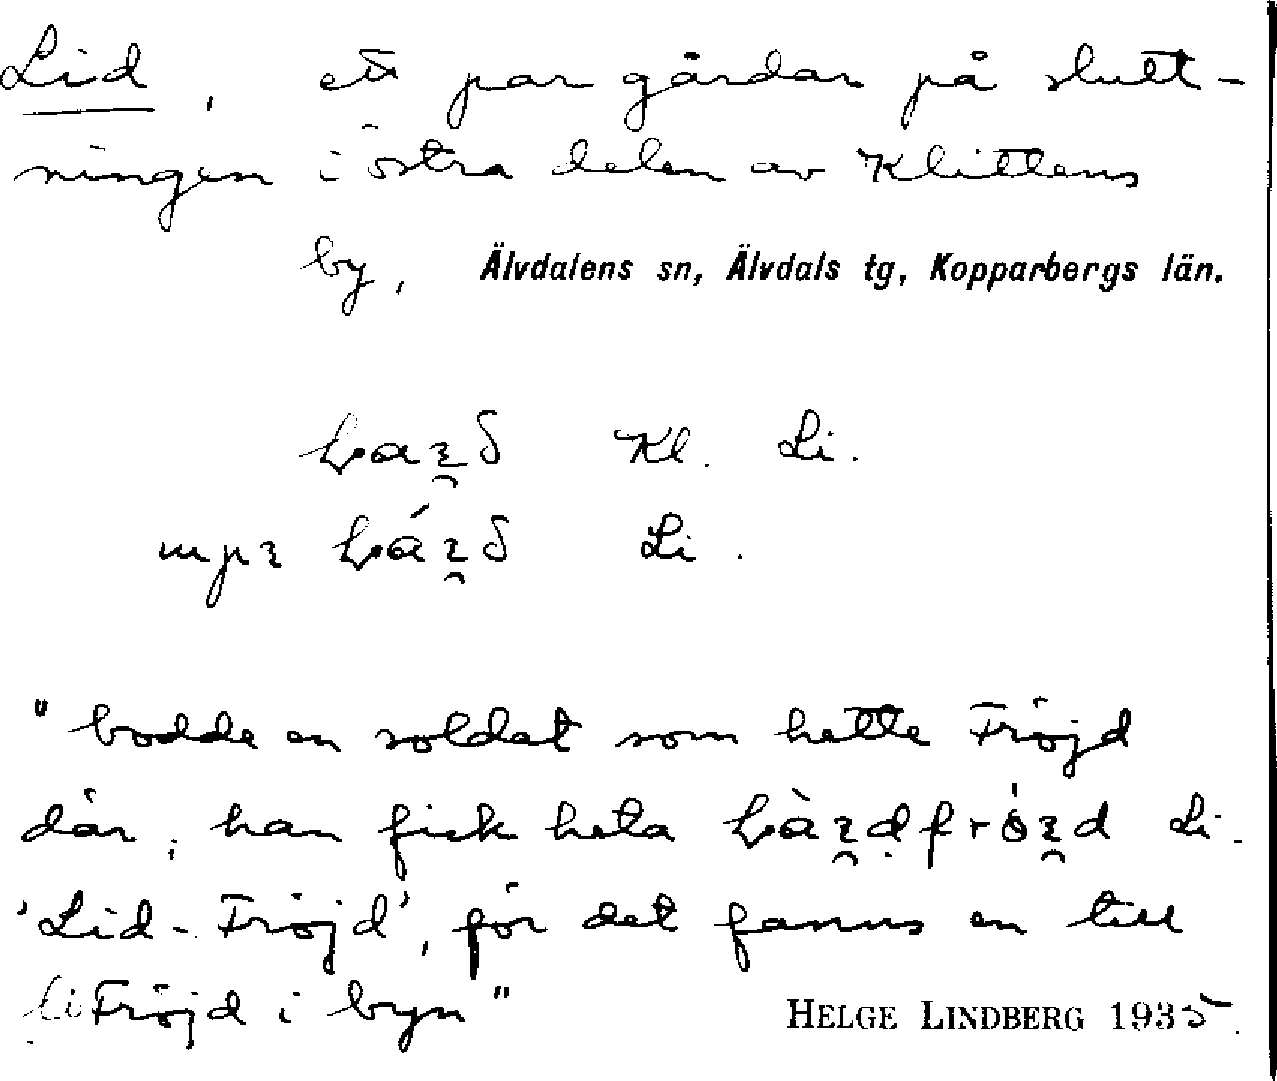 Lid, ett par gårdar på slutt-
ningen i östra delen av Klittens
by, Älvdalens sn, Älvdals tg, Kopparbergs län.
Kl. Li.
Li.
"bodde en soldat som hette Fröjd
där, han fick heta Li.
'Lid-Fröjd', för det fanns en till
Fröjd i byn"
HELGE LINDBERG 1935.